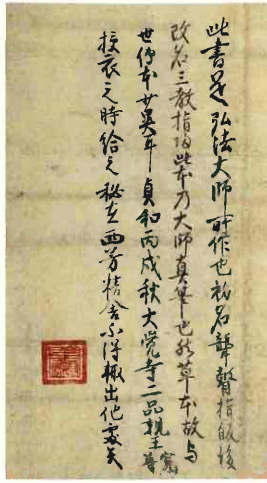 此書是弘法大師所作也初名聾瞽指歸後
改名三教指歸此本乃大師真筆也然草本故与
世傳本廿異耳貞和丙戌秋大覚寺二品親王寛尊
授衣之時給之秘在西芳精舎不得輙出他處矣